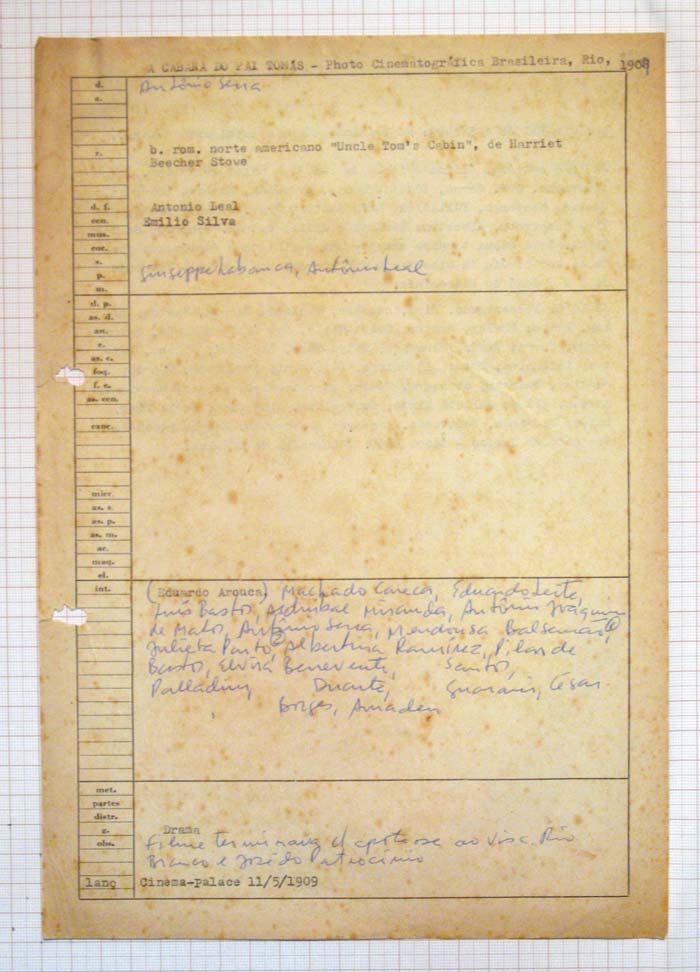 A CABANA DO PAI TOMÁS - Photo Cinematográfica Brasileira, Rio, 1909
d. Antônio Serra
a.
r. b. rom. norte americano "Uncle Tom's Cabin", de Harriet
Beecher Stowe
d. f. Antonio Leal
cen. Emilio Silva
mus.
cor.
s.
p. Giuseppe Labanca, Antônio Leal
m.
d. p.
as. d.
an.
c.
as. c.
foq.
f. c.
as. cen.
canc.
micr.
as. s.
as. p.
as. m.
ac.
maq.
el.
int. (Eduardo Arouca) Machado Careca, Eduardo Leite,
Luís Bastos, Asdrubal Miranda, Antônio Joaquim
de Matos, Antônio Serra, Mendonsa Balsemão,
Julieta Pinto, Albertina Ramirez, Pilar de
Bastos, Elvira Benevente, Santos,
Palladini, Duarte, Guaranis, César
Borges, Amadeu
met.
partes
distr.
g. Drama
obs. Filme terminava c/ apoteose ao Visc. Rio
Branco e José do Patrocínio
lanç Cinema-Palace 11/5/1909